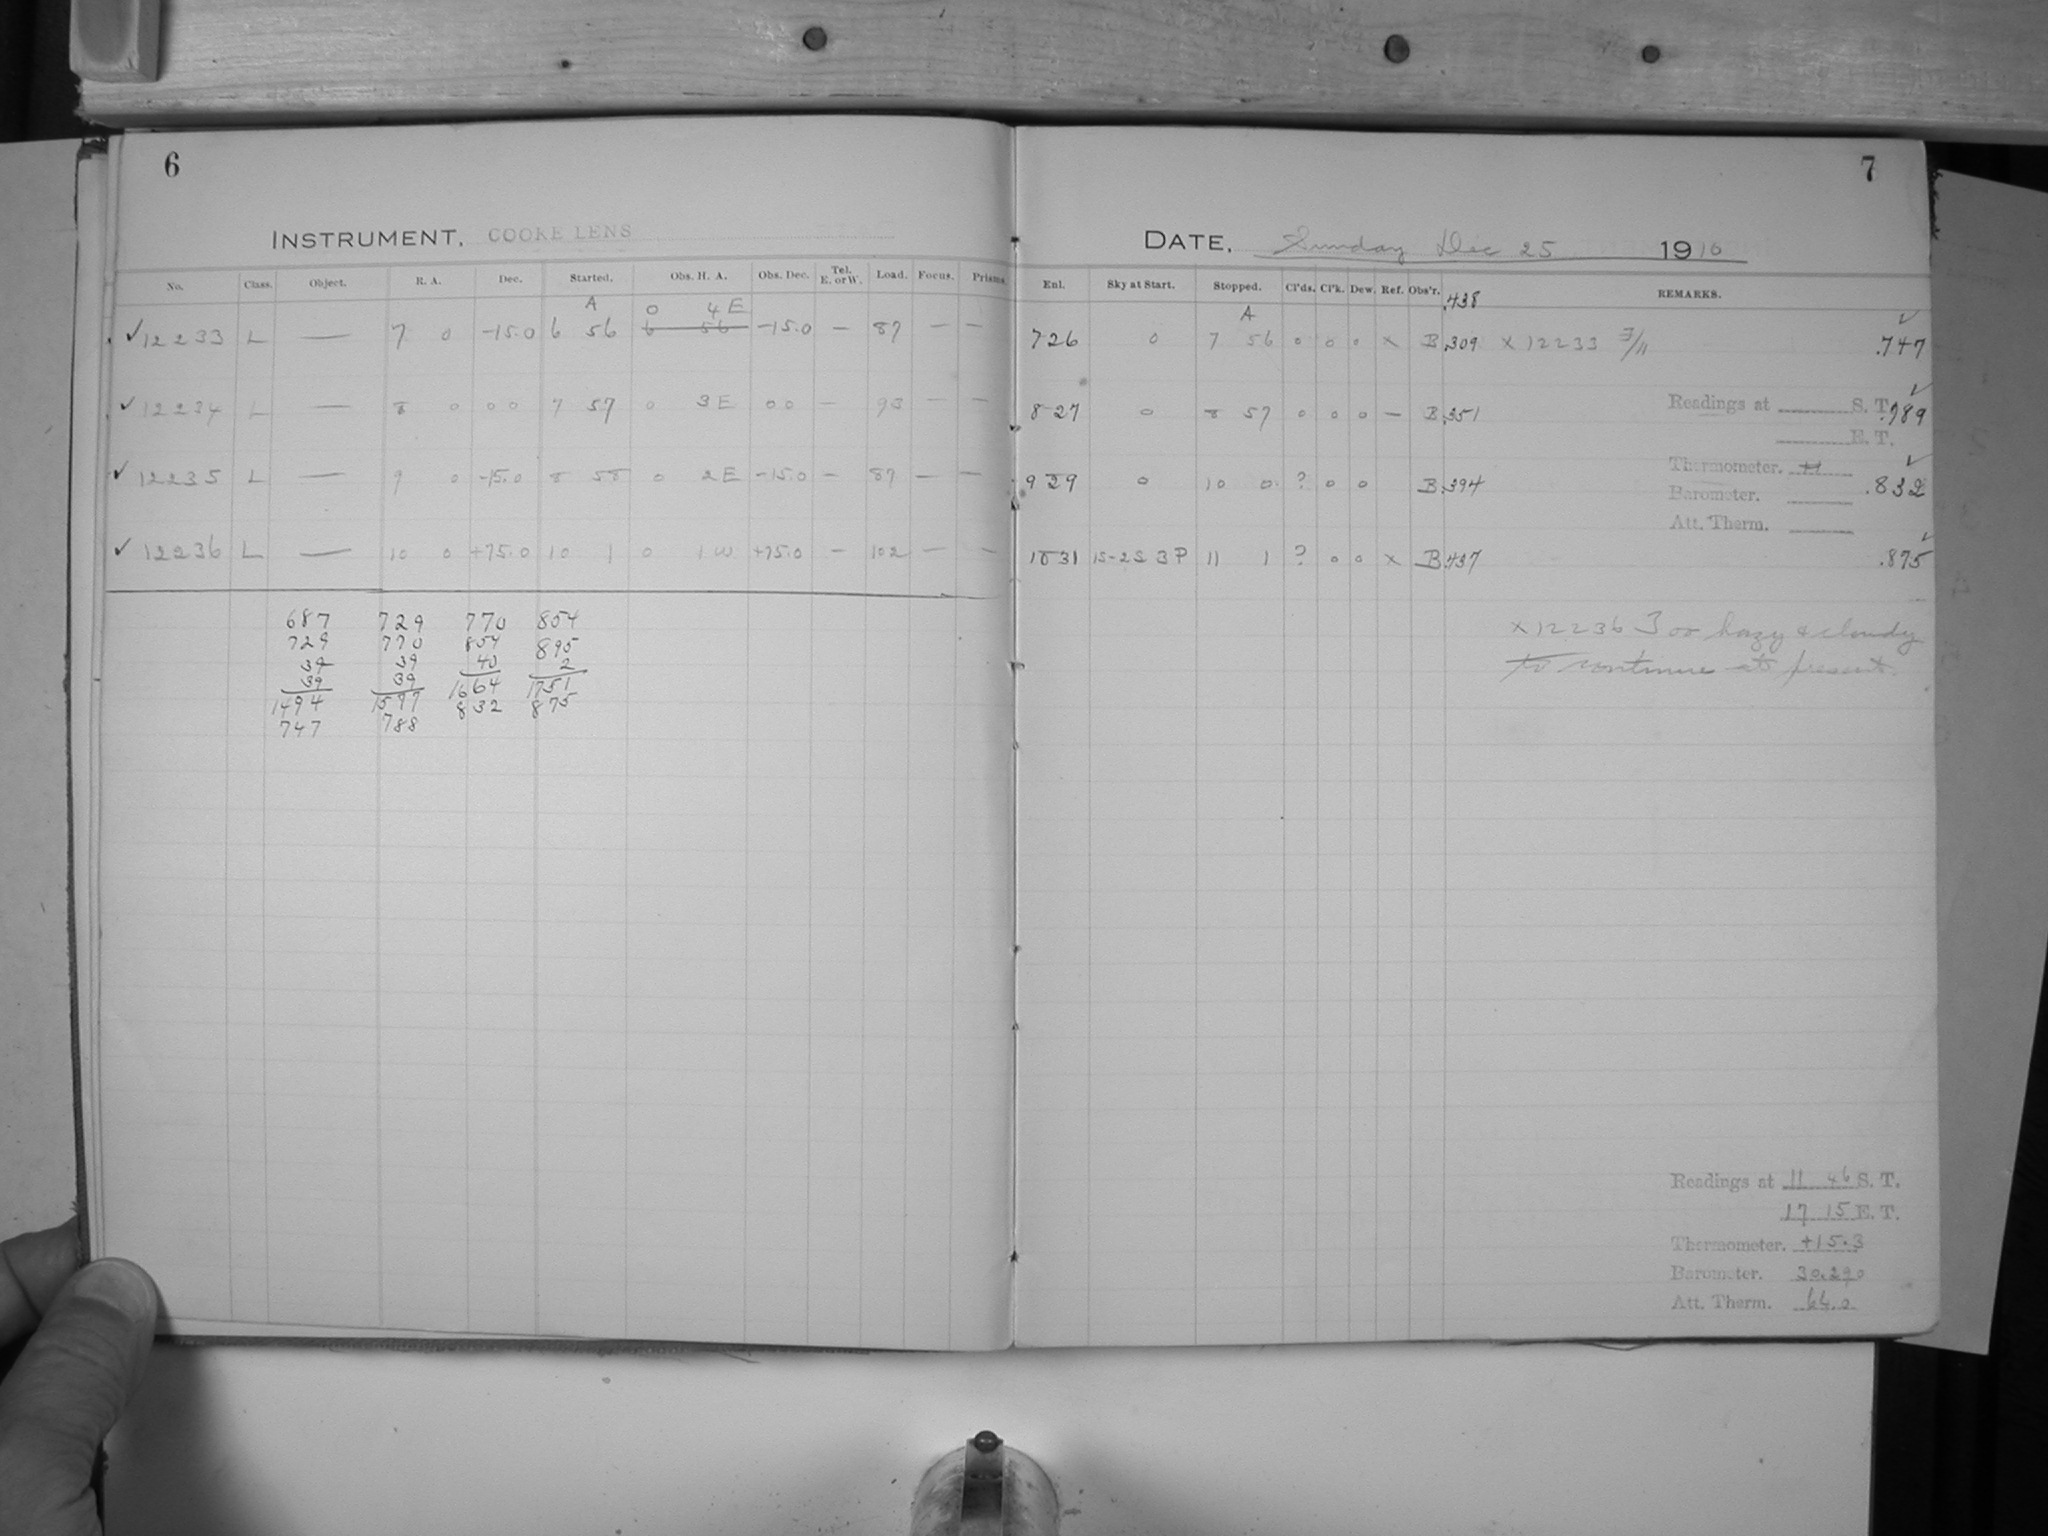 6
INSTRUMENT, COOKE LENS
No. Class. Object. R. A. Dec. Started. Obs. H. A. Obs. Dec. Tel. E. or W. Load. Focus. Prisms.
A 0 4 E
✓ 12233 L — 7 0 -15.0 6 56 6 56 -15.0 — 87 — —
✓ 12234 L — 8 0 0 0 7 57 0 3 E 0 0 — 93 — —
✓ 12235 L — 9 0 -15.0 8 58 0 2 E -15.0 — 87 — —
✓ 12236 L — 10 0 +75.0 10 1 0 1 W +75.0 — 102 — —
687 729 770 854
729 770 854 895
39 39 40 2
39 39 1664 1751
1494 1577 832 875
747 788
7
DATE, Sunday Dec 25 1910
Enl. Sky at Start. Stopped. Cl'ds. Cl'k. Dew. Ref. Obs'r. REMARKS.
A .438 ✓
7 26 0 7 56 0 0 0 x B .309 x 12233 3/11 .747
8 27 0 8 57 0 0 0 — B .351 Readings at S. T. ✓ .789
E. T.
9 29 0 10 0 ? 0 0 B .394 Thermometer. ✓ .832
Barometer.
Att. Therm.
10 31 1S-2S 3P 11 1 ? 0 0 x B .437 ✓ .875
x 12236 Too hazy & cloudy
to continue at present.
Readings at 11 46 S. T.
17 15 E. T.
Thermometer. +15.3
Barometer. 30.290
Att. Therm. 64.0